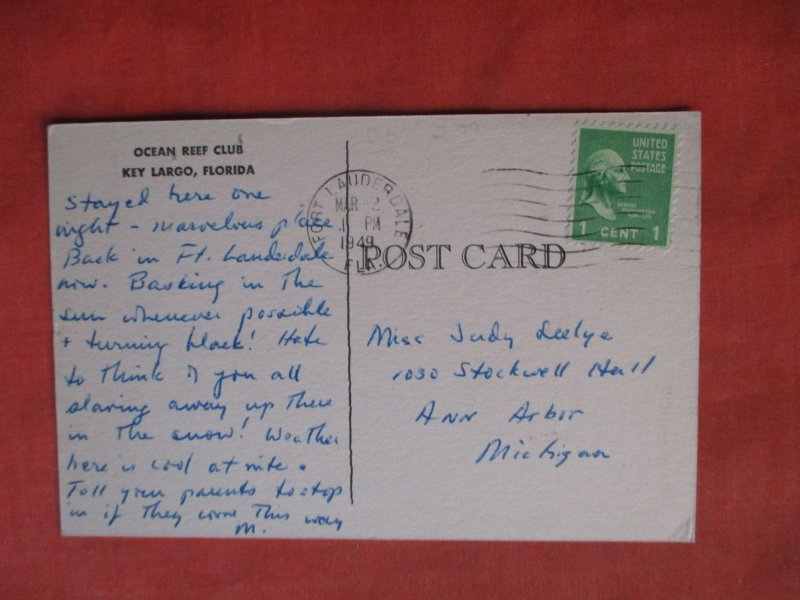 OCEAN REEF CLUB
KEY LARGO, FLORIDA
Stayed here one
night - marvelous place
Back in Ft. Lauderdale
now. Basking in the
sun whenever possible
+ turning black! Hate
to think of you all
slaving away up there
in the snow! Weather
here is cool at nite.
Tell your parents to stop
in if they come this way
M.
FORT LAUDERDALE
MAR 2
1 PM
1949
FLA.
UNITED
STATES
POSTAGE
GEORGE
WASHINGTON
1 CENT 1
POST CARD
Miss Judy Seelye
1030 Stockwell Hall
Ann Arbor
Michigan